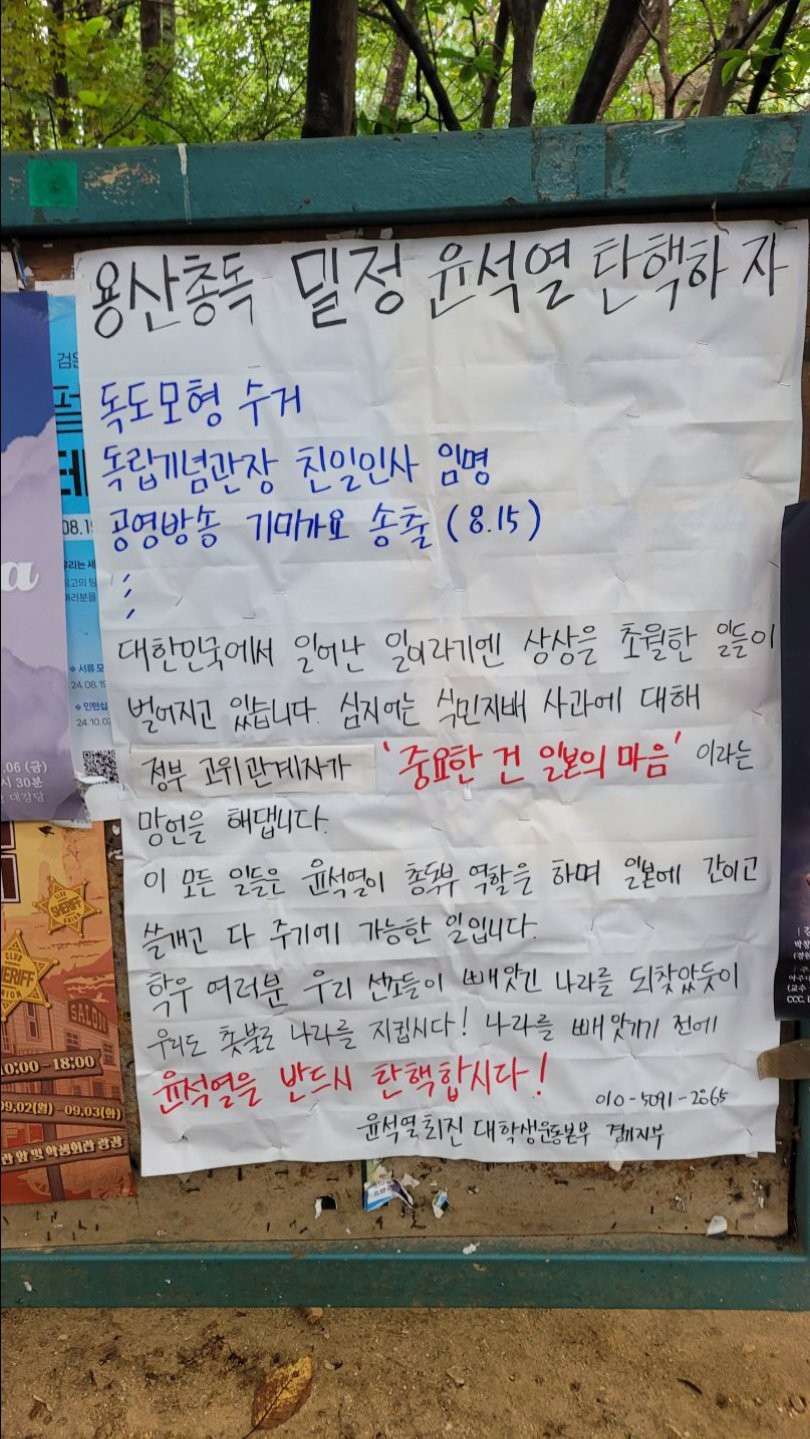 용산총독 밀정 윤석열 탄핵하자
독도모형 수거
독립기념관장 친일인사 임명
공영방송 기미가요 송출 (8.15)
⋮
대한민국에서 일어난 일이라기엔 상상을 초월한 일들이
벌어지고 있습니다. 심지어는 식민지배 사과에 대해
정부 고위관계자가 '중요한 건 일본의 마음' 이라는
망언을 해댑니다.
이 모든 일들은 윤석열이 총독부 역할을 하며 일본에 간이고
쓸개고 다 주기에 가능한 일입니다.
학우 여러분 우리 선조들이 빼앗긴 나라를 되찾았듯이
우리도 촛불로 나라를 지킵시다! 나라를 빼앗기기 전에
윤석열을 반드시 탄핵합시다!
010-5091-2065
윤석열퇴진 대학생운동본부 경기지부
검은
08.19
서류
24.08.19
24.10.02
.06 (금)
시 30분
대강당
SHERIFF
CLUB
UNION
SHERIFF
UNION
SALOON
10:00 -18:00
09.02(월) -09.03(화)
관 앞 및 학생회관 광장
(교수
CCC,